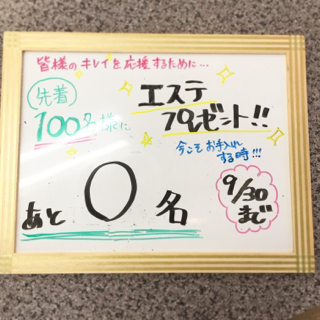 皆様のキレイを応援するために…
先着
100名様に
エステ
プレゼント!!
今こそお手入れ
する時!!!
あと 0 名
9/30
まで